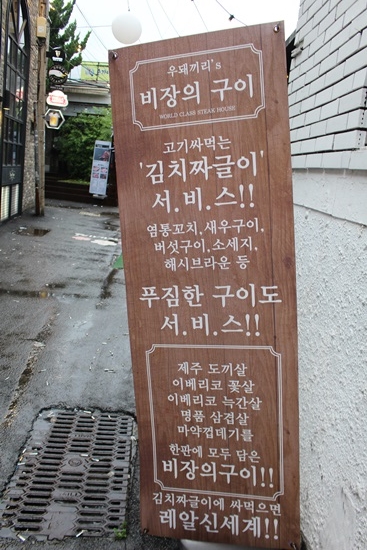 우돼끼리's
비장의 구이
WORLD CLASS STEAK HOUSE
고기싸먹는
'김치짜글이'
서.비.스!!
염통꼬치, 새우구이,
버섯구이, 소세지,
해시브라운 등
푸짐한 구이도
서.비.스!!
제주 도끼살
이베리코 꽃살
이베리코 늑간살
명품 삼겹살
마약껍데기를
한판에 모두 담은
비장의구이!!
김치짜글이에 싸먹으면
레알신세계!!